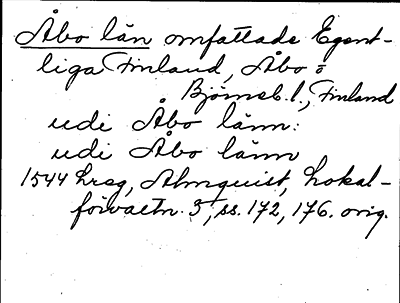 Åbo län omfattade Egent-
liga Finland, Åbo o
Björneb. l., Finland
udi Åbo länn:
udi Åbo länn
1544 hrsg, Almquist, Lokal-
förvaltn. 3, ss. 172, 176. orig.